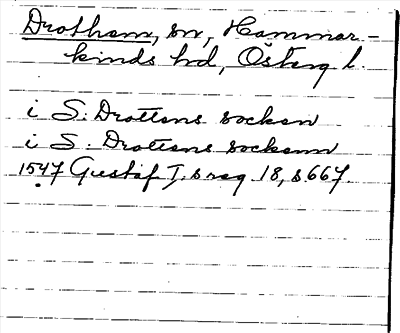 Drothem, sn, Hammar-
kinds hd, Österg l.
i S. Drottens socken
i S. Drottens sockenn
1547 Gustaf I:s reg 18, s 667